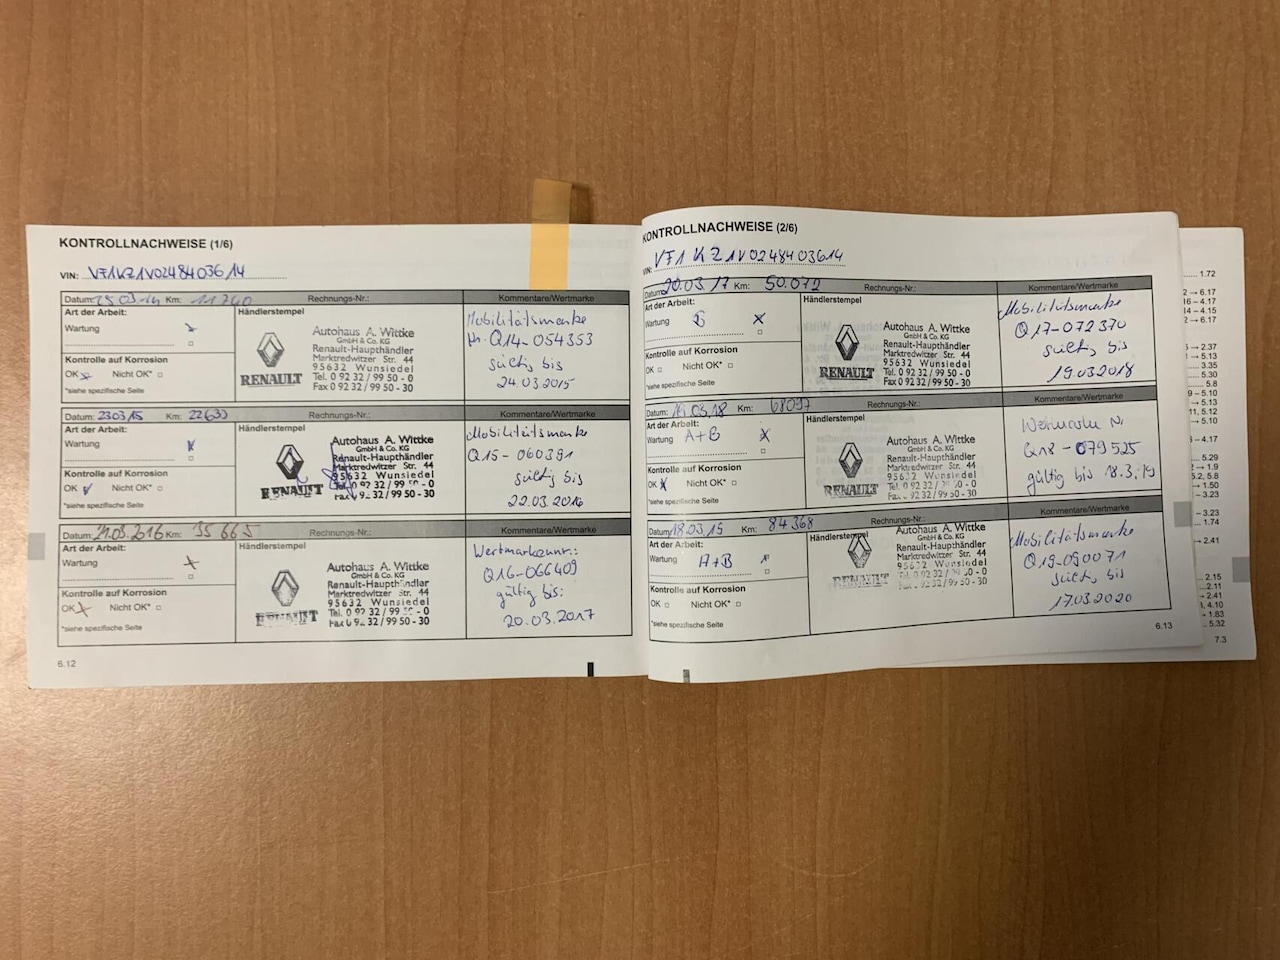 KONTROLLNACHWEISE (1/6)
VIN: VF1KZ1V0248403614
Datum: 25.03.14 Km: 11740 Rechnungs-Nr.: Kommentare/Wertmarke
Art der Arbeit: Händlerstempel
Wartung
Kontrolle auf Korrosion
OK Nicht OK*
*siehe spezifische Seite
RENAULT
Autohaus A. Wittke
GmbH & Co. KG
Renault-Haupthändler
Marktredwitzer Str. 44
95632 Wunsiedel
Tel. 0 92 32 / 99 50 - 0
Fax 0 92 32 / 99 50 - 30
Mobilitätsmarke
Nr. Q14-054353
gültig bis
24.03.2015
Datum: 230315 Km: 22633 Rechnungs-Nr.: Kommentare/Wertmarke
Art der Arbeit: Händlerstempel
Wartung
Kontrolle auf Korrosion
OK Nicht OK*
*siehe spezifische Seite
RENAULT
Autohaus A. Wittke
GmbH & Co. KG
Renault-Haupthändler
Marktredwitzer Str. 44
95632 Wunsiedel
Tel. 0 92 32 / 99 50 - 0
Fax 0 92 32 / 99 50 - 30
Mobilitätsmarke
Q15-060391
gültig bis
22.03.2016
Datum: 21.03.2016 Km: 35665 Rechnungs-Nr.: Kommentare/Wertmarke
Art der Arbeit: Händlerstempel
Wartung
Kontrolle auf Korrosion
OK Nicht OK*
*siehe spezifische Seite
RENAULT
Autohaus A. Wittke
GmbH & Co. KG
Renault-Haupthändler
Marktredwitzer Str. 44
95632 Wunsiedel
Tel. 0 92 32 / 99 50 - 0
Fax 0 92 32 / 99 50 - 30
Wertmarkennr.:
Q16-066409
gültig bis:
20.03.2017
6.12
KONTROLLNACHWEISE (2/6)
VIN: VF1KZ1V0248403614
Datum: 20.03.17 Km: 50.072 Rechnungs-Nr.: Kommentare/Wertmarke
Art der Arbeit: Händlerstempel
Wartung B
Kontrolle auf Korrosion
OK Nicht OK*
*siehe spezifische Seite
RENAULT
Autohaus A. Wittke
GmbH & Co. KG
Renault-Haupthändler
Marktredwitzer Str. 44
95632 Wunsiedel
Tel. 0 92 32 / 99 50 - 0
Fax 0 92 32 / 99 50 - 30
Mobilitätsmarke
Q17-072370
gültig bis
19.03.2018
Datum: 19.03.18 Km: 68097 Rechnungs-Nr.: Kommentare/Wertmarke
Art der Arbeit: Händlerstempel
Wartung A+B
Kontrolle auf Korrosion
OK Nicht OK*
*siehe spezifische Seite
RENAULT
Autohaus A. Wittke
GmbH & Co. KG
Renault-Haupthändler
Marktredwitzer Str. 44
95632 Wunsiedel
Tel. 0 92 32 / 99 50 - 0
Fax 0 92 32 / 99 50 - 30
Q18-079525
gültig bis 18.3.19
Datum: 18.03.19 Km: 84368 Rechnungs-Nr.: Kommentare/Wertmarke
Art der Arbeit: Händlerstempel
Wartung A+B
Kontrolle auf Korrosion
OK Nicht OK*
*siehe spezifische Seite
RENAULT
Autohaus A. Wittke
GmbH & Co. KG
Renault-Haupthändler
Marktredwitzer Str. 44
95632 Wunsiedel
Tel. 0 92 32 / 99 50 - 0
Fax 0 92 32 / 99 50 - 30
Mobilitätsmarke
Q19-090071
gültig bis
17.03.2020
6.13
1.72
2 → 6.17
16 → 4.15
14 → 4.15
2 → 6.17
→ 2.37
→ 5.13
3.35
5.30
5.8
9 → 5.10
→ 5.13
11, 5.12
→ 5.10
→ 4.17
5.29
→ 1.9
5.2, 5.8
→ 1.50
→ 3.23
→ 3.23
→ 1.74
→ 2.41
2.15
2.11
→ 2.41
4.10
→ 1.83
5.32
7.3